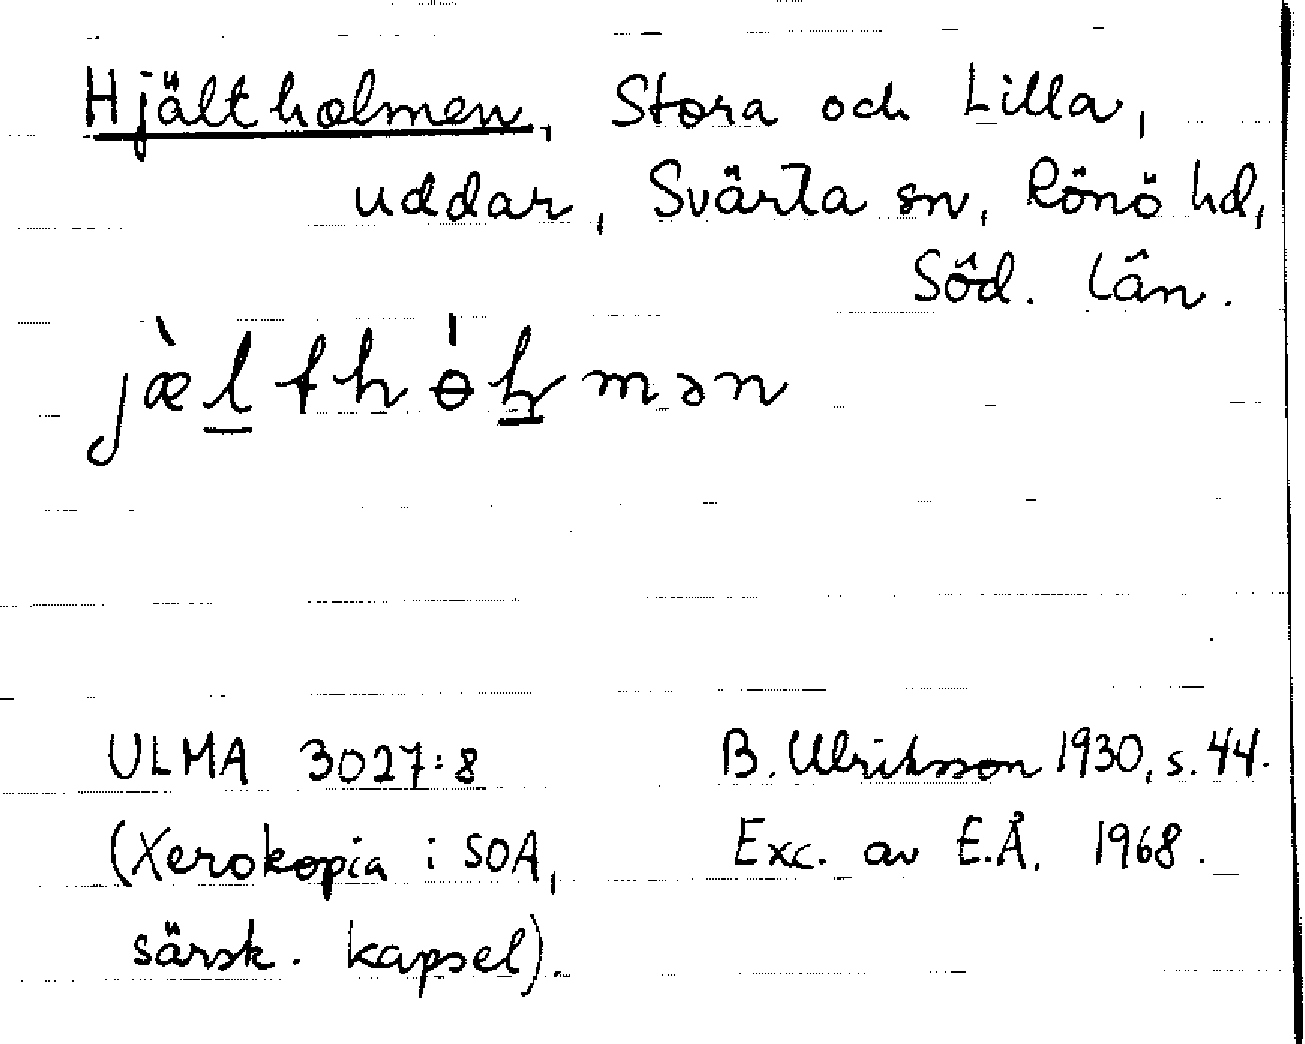 Hjältholmen, Stora och Lilla,
uddar, Svärta sn, Rönö hd,
Söd. län.
jæ̀lthɵ́lmən
ULMA 3027:8
(Xerokopia i SOA,
särsk. kapsel).
B. Ulriksson 1930, s. 44.
Exc. av E.Å. 1968.